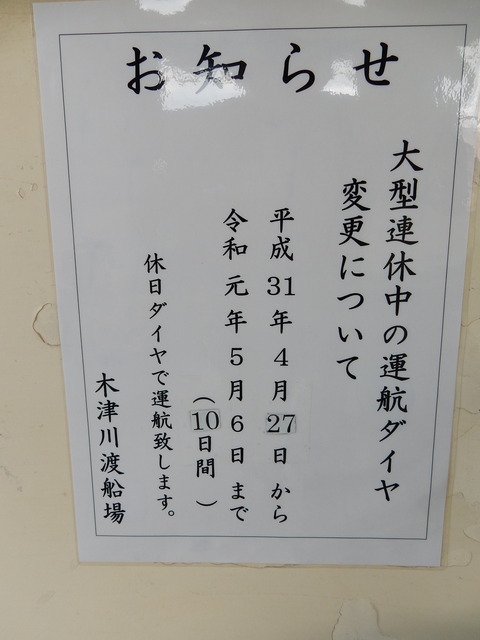 お知らせ
大型連休中の運航ダイヤ
変更について
平成31年4月27日から
令和元年5月6日まで
（10日間）
休日ダイヤで運航致します。
木津川渡船場